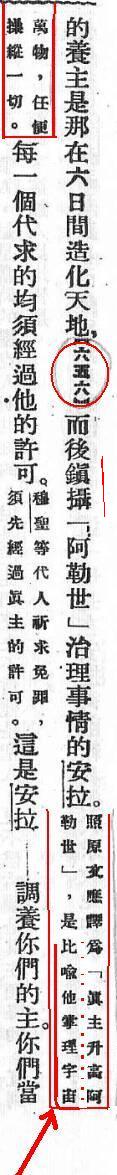 的養主是那在六日間造化天地，六五六而後鎮攝「阿勒世」治理事情的安拉。照原文應譯爲「眞主升高阿勒世」，是比喻他掌理宇宙
萬物，任便操縱一切。每一個代求的均須經過他的許可。穆聖等代人祈求免罪，須先經過眞主的許可。這是安拉——調養你們的主。你們當